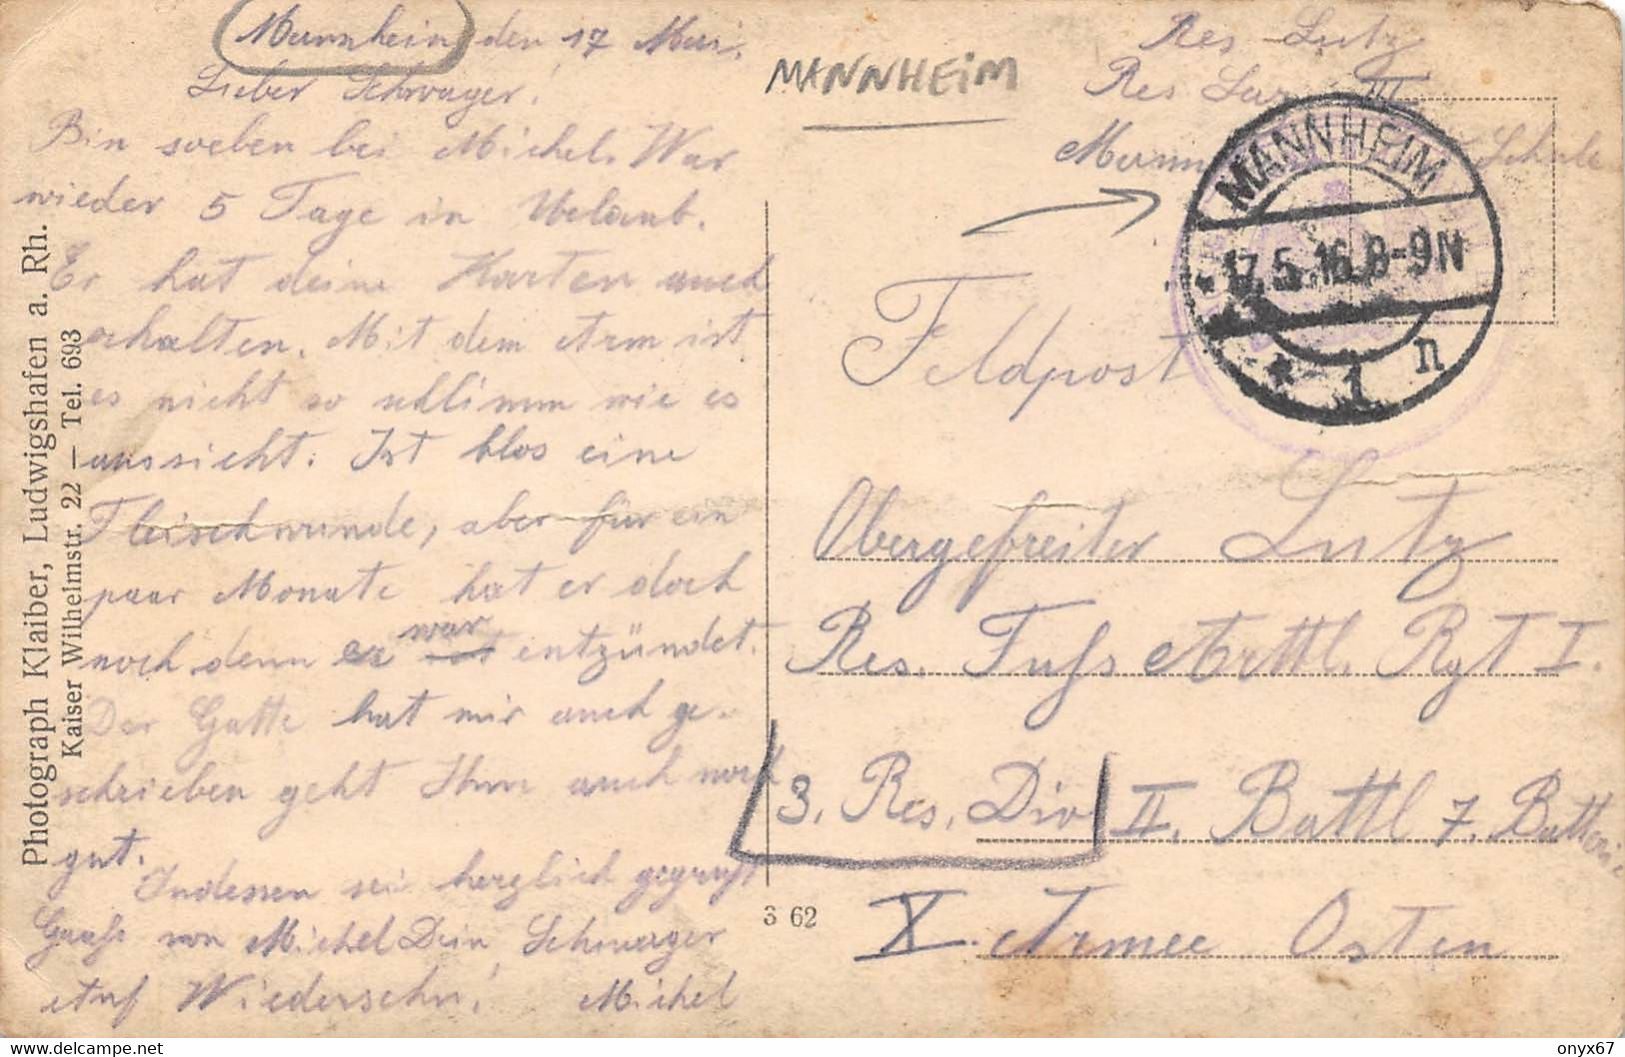 Mannheim den 17 Mai.
Lieber Schwager!
Bin soeben bei Michel. War
wieder 5 Tage in Uelaub.
Er hat deine Karten auch
erhalten. Mit dem Arm ist
es nicht so schlimm wie es
aussicht. Ist blos eine
Fleischwunde, aber für ein
paar Monate hat er doch
noch denn er war entzündet.
Der Gatte hat mir auch ge-
schrieben geht Ihm auch noch
gut.
Indessen sei herzlich gegrüßt
von Michel Dein Schwager
Auf Wiedersehn! Michel
Photograph Klaiber, Ludwigshafen a. Rh.
Kaiser Wilhelmstr. 22 — Tel. 693
3 62
MANNHEiM
Res Lutz
Res Laz III
MANNHEIM
* 17.5.16.8-9N
* 1 n
Feldpost
Obergefreiter Lutz
Res. Fuss Arttl. Rgt I.
3. Res. Div II. Battl 7. Batterie
X. Armee Osten
delcampe.net
onyx67